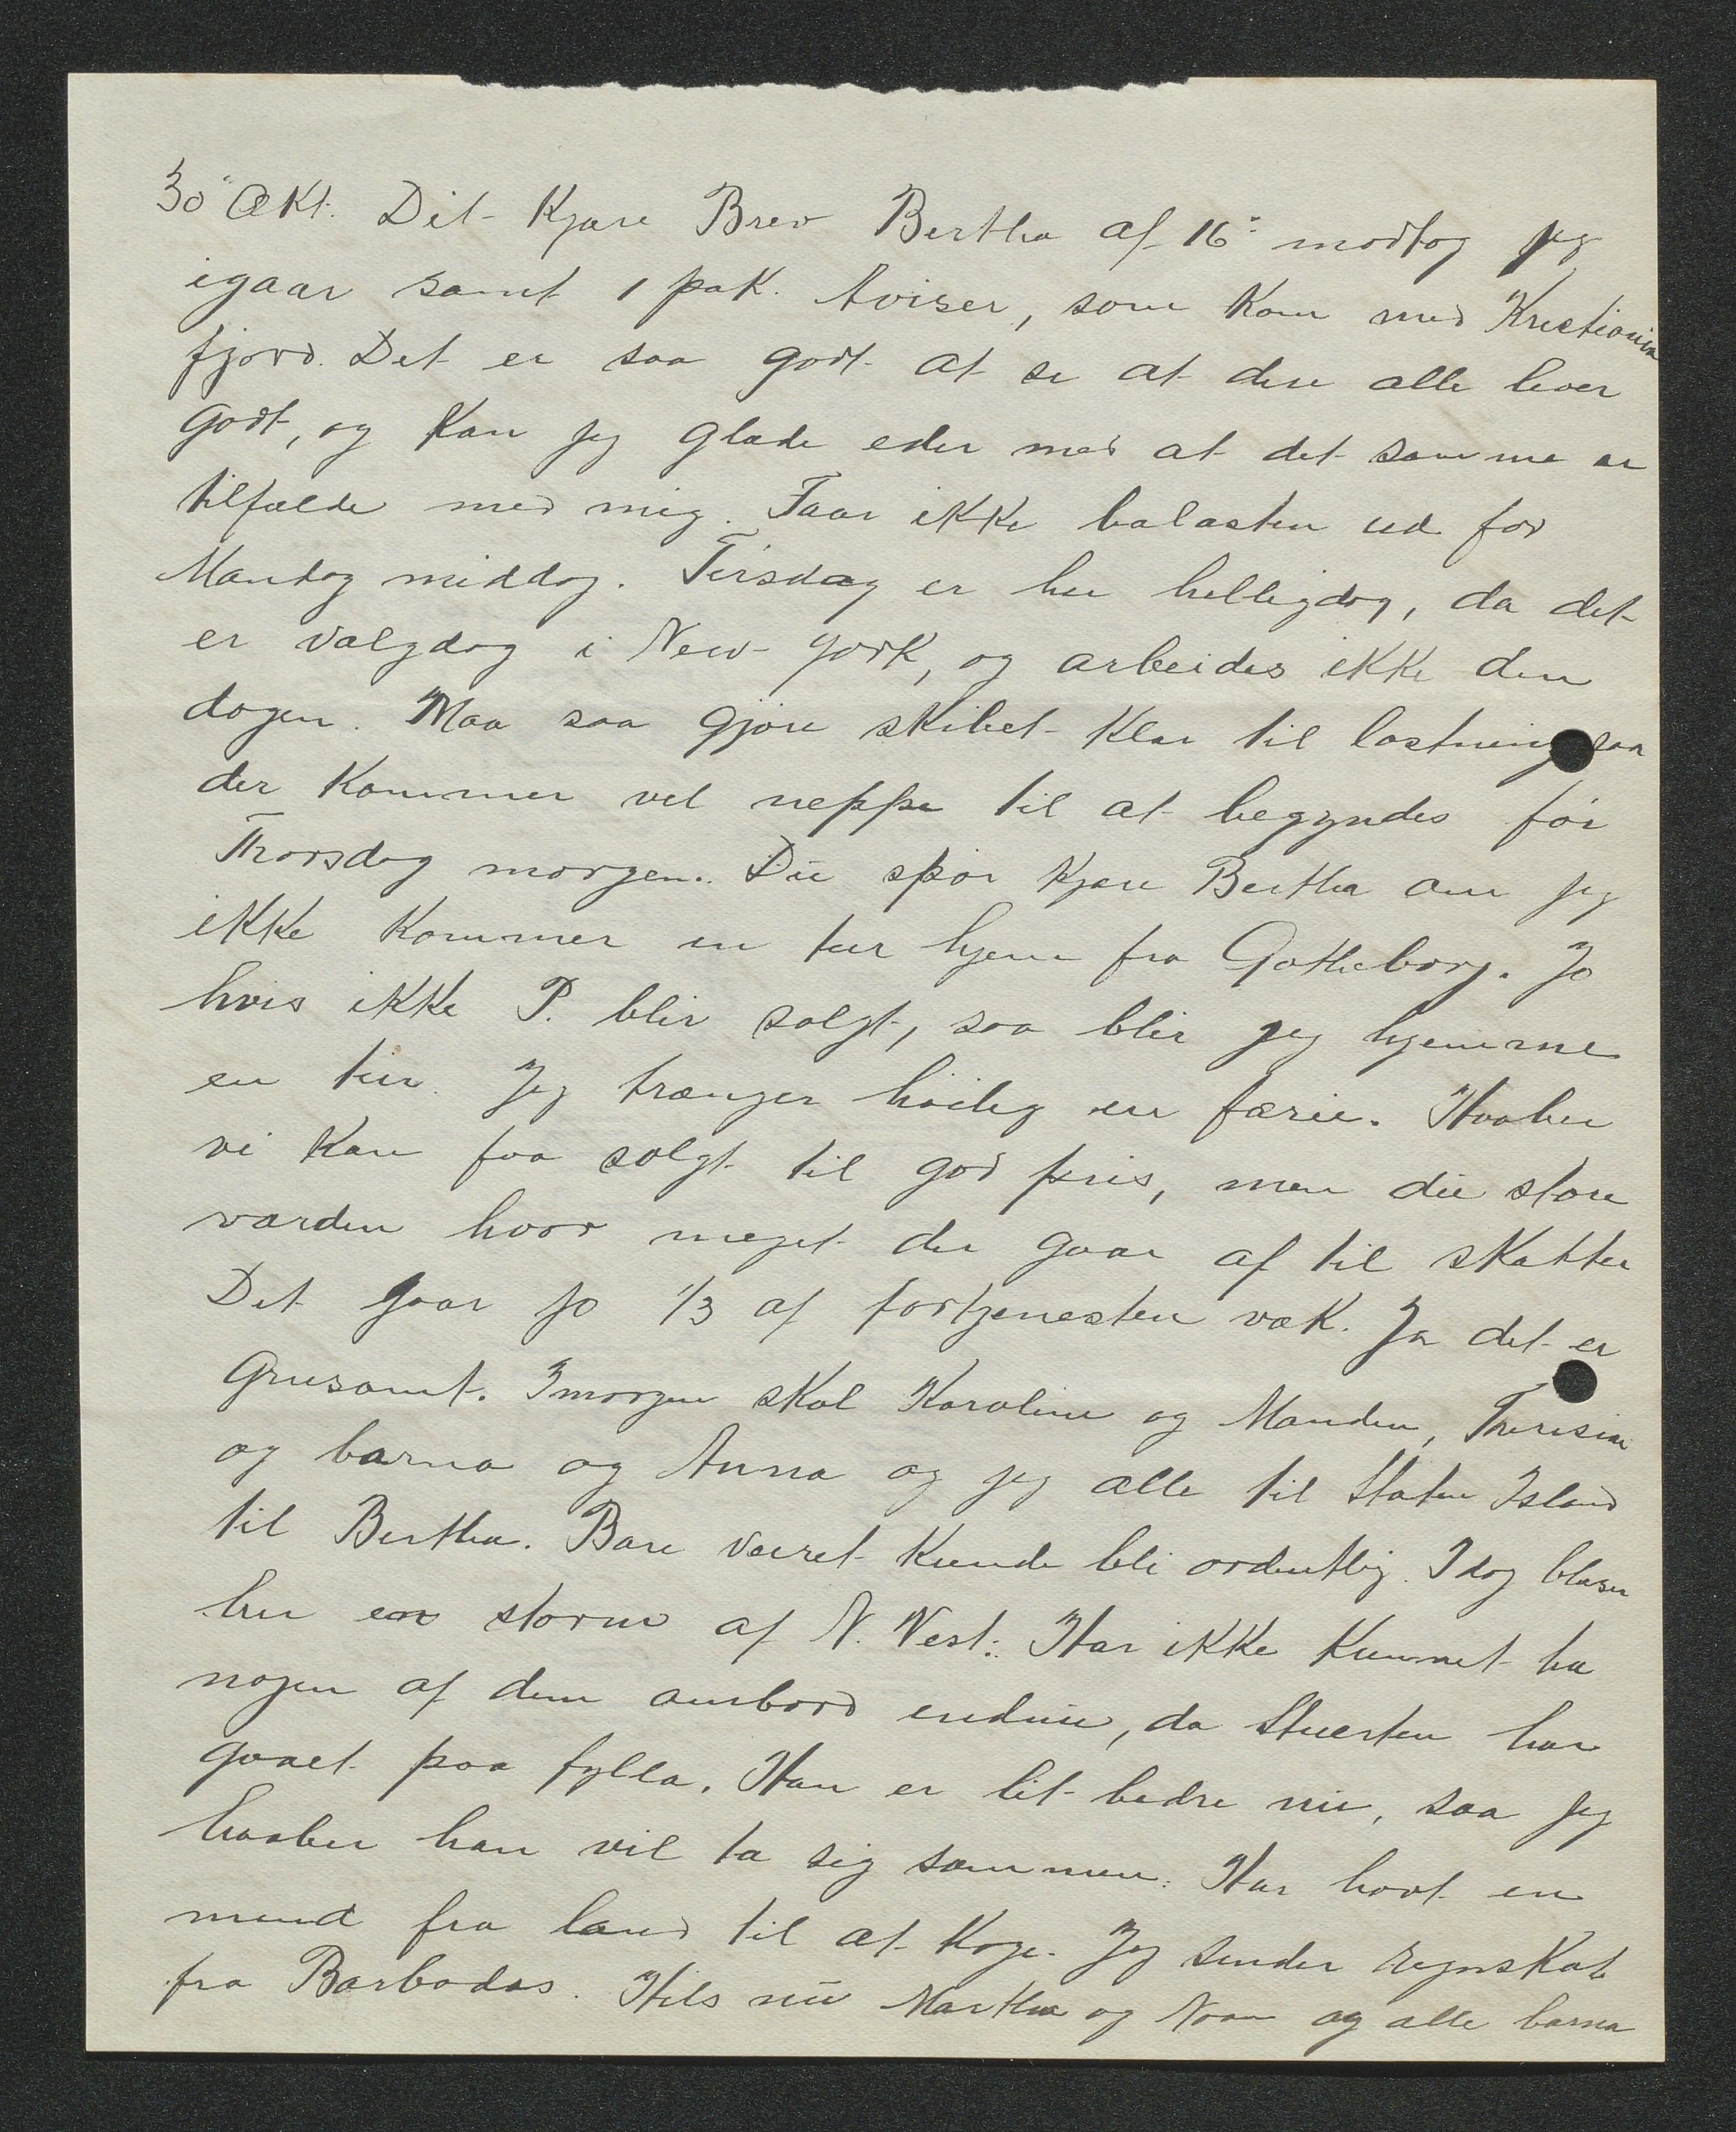 30¨ Okt. Dit Kjære Brev Bertha af 16¨ modtog jeg
igaar samt 1 pak. Aviser, som kom med Kristiania
fjord. Det er saa godt at se at dere alle lever
godt, og kan jeg glæde eder med at det samme er
tilfælde med mig. Faar ikke balasten ud før
Mandag middag. Tirsdag er her helligdag, da det
er valgdag i New York, og arbeides ikke den
dagen. Maa saa gjøre skibet klar til lastning saa
der kommer vel neppe til at begyndes før
Thorsdag morgen. Du spør kjære Bertha om jeg
ikke kommer en tur hjem fra Gotheborg. Jo
hvis ikke P. blir solgt, saa blir jeg hjemme
en tur. Jeg trænger høilig en færie. Haaber
vi kan faa solgt til god pris, men du store
værden hvor meget der gaar af til skatter
Det gaar jo 1/3 af fortjenesten væk. Ja det er
grusomt. Imorgen skal Karoline og Manden, Theresine
og barna og Anna og jeg alle til Staten Island
til Bertha. Bare veiret kunde bli ordentlig. Idag blæser
her en storm af N. Vest. Har ikke kunnet ha
nogen af dem ombord endnu, da Stuerten har
gaaet paa fylla. Han er lit bedre nu, saa jeg
haaber han vil ta sig sammen. Har havt en
mand fra land til at koge. Jeg sender regnskab
fra Barbados. Hils nu Martha og Noam og alle barna